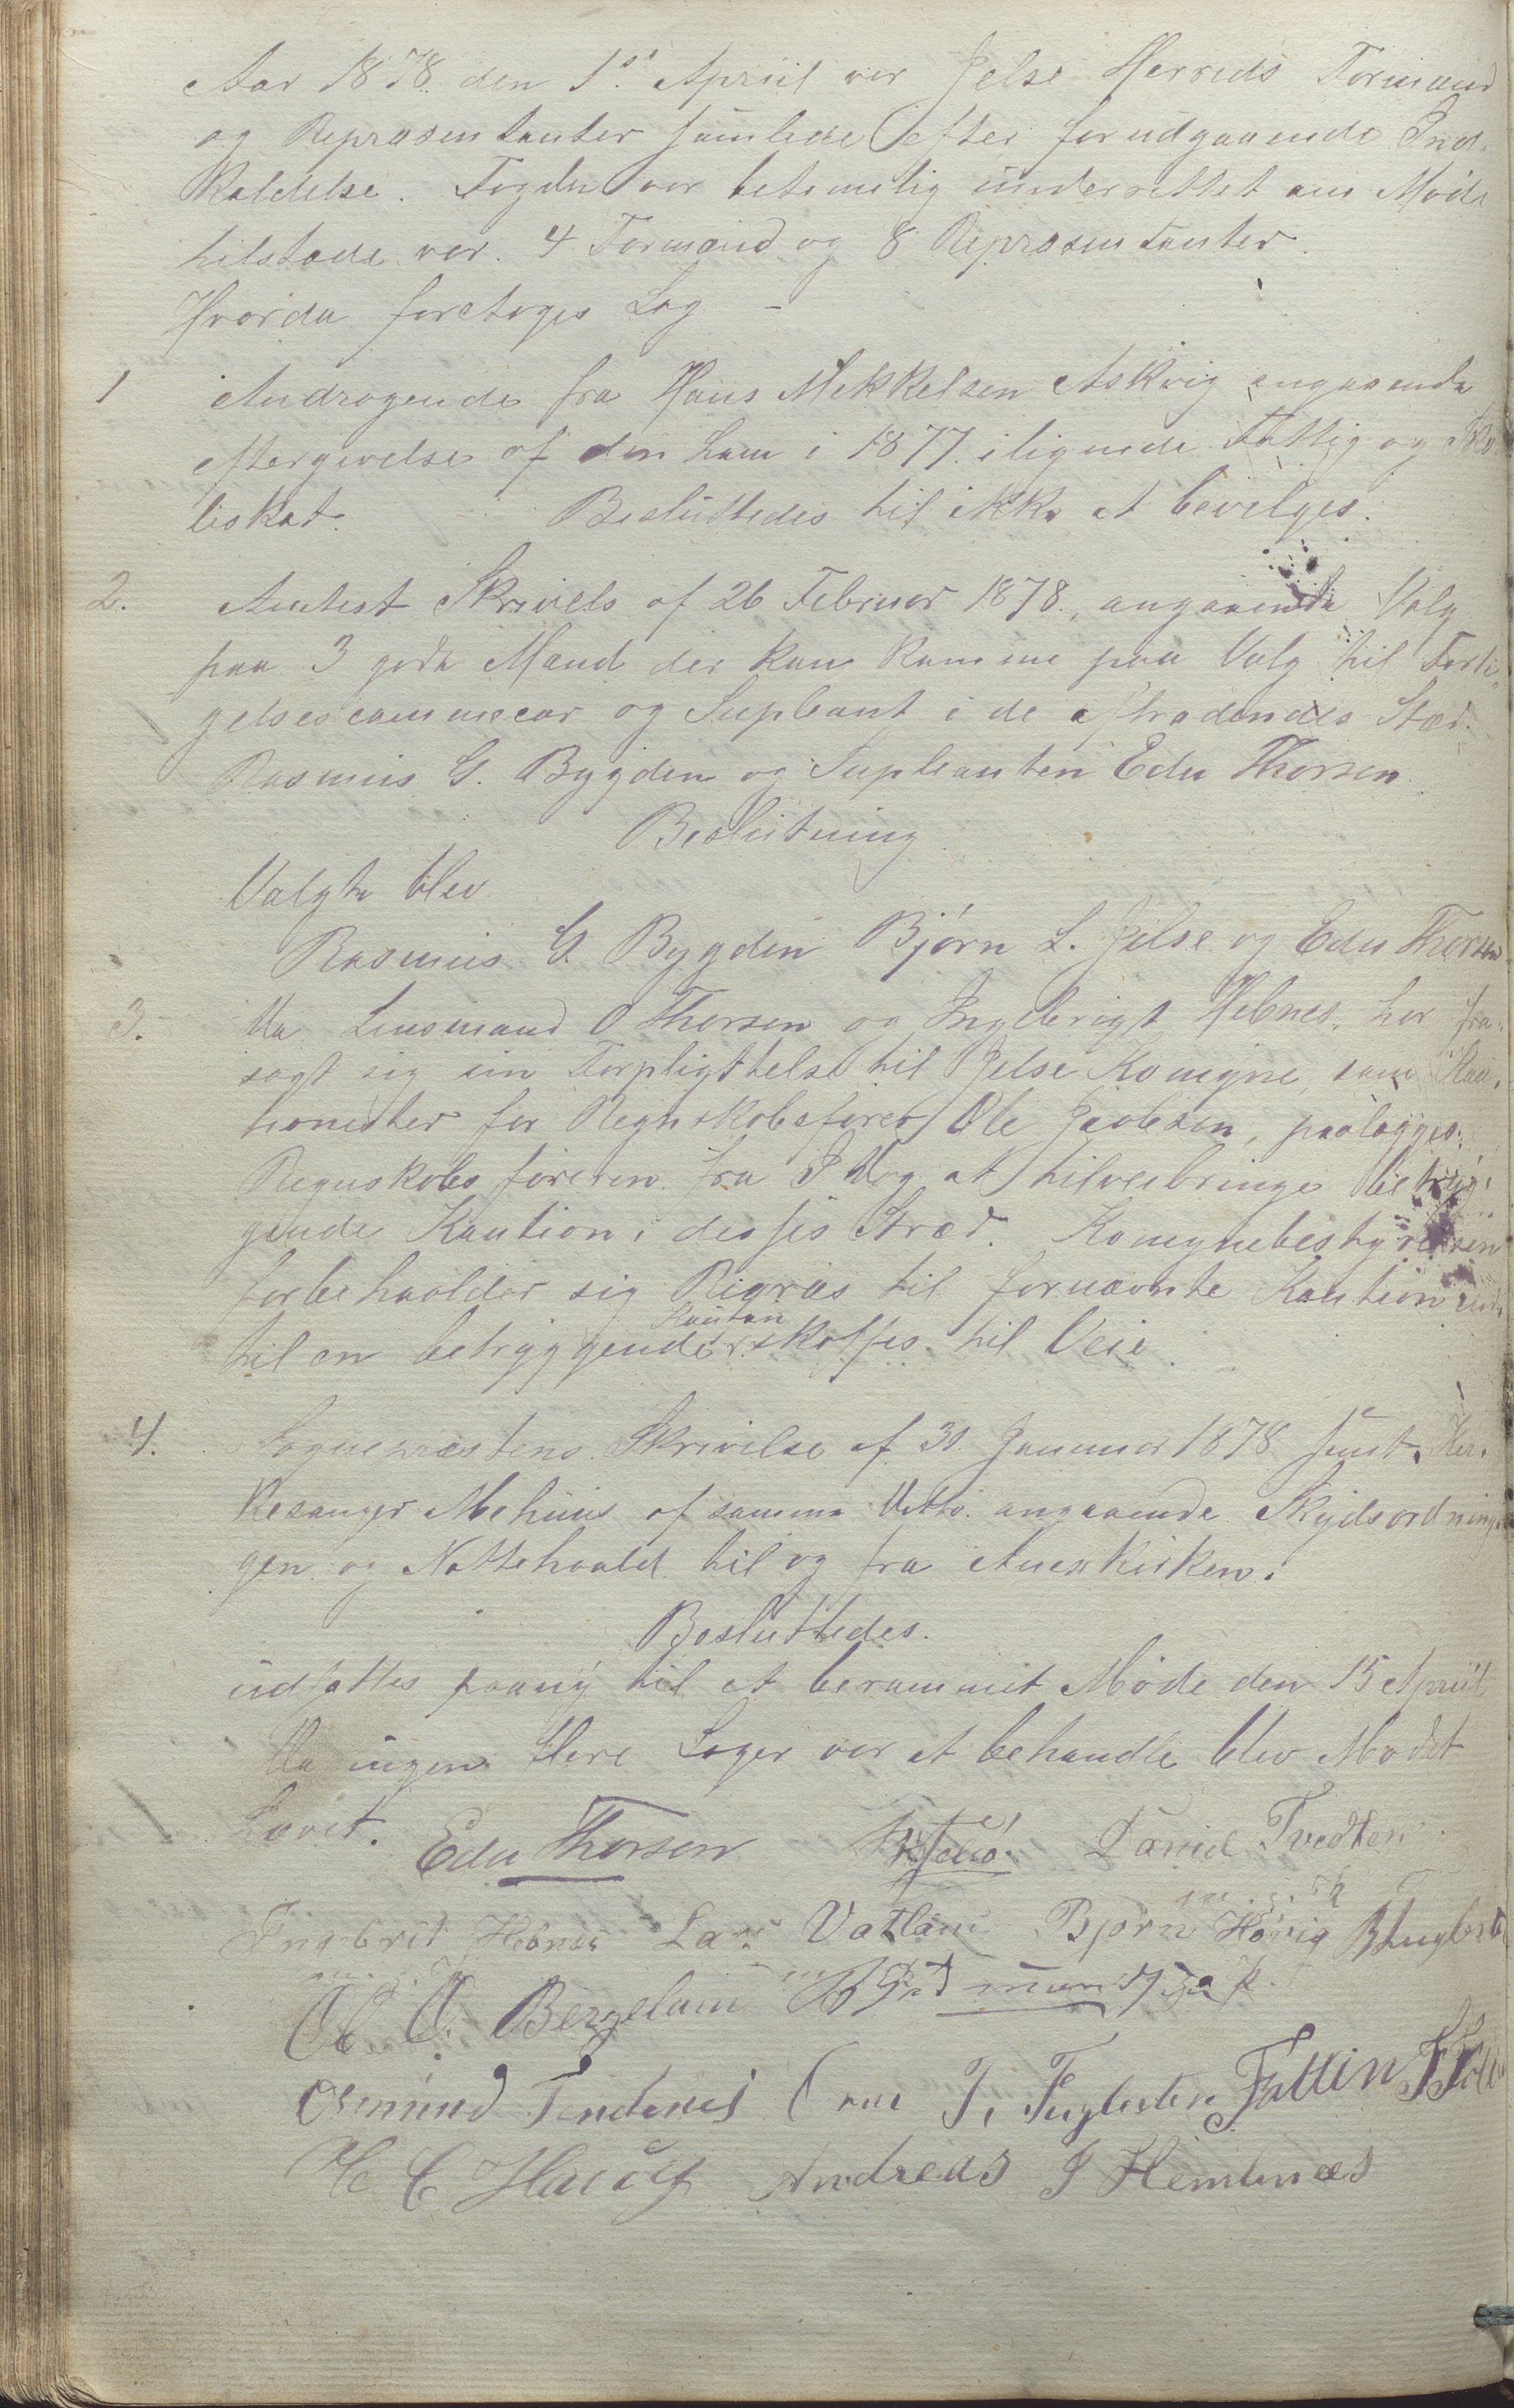 Aar 1878. den 1ste Apriil var Jelse Herreds Formænd
og Repræsentanter samlede efter forudgaaende Ind-
kaldelse. Fogden var betimelig underrettet om Møde
tilstæde var. 4 Formænd og 8 Repræsentanter.
Hvorda foretoges Sag –
1 Andragende fra Hans Mekkelsen Askvig angaaende
eftergivelse af den ham i 1877. ilignede Fattig og Sko-
leskat. Besluttedes til ikke at bevilges.
2. Amtest Skrivels af 26 Februar 1878., angaaende Valg
paa 3 gode Mænd der kan komme paa Valg til Forli-
gelsescommesær og Supleant i de aftrædendes Stæd.
Rasmus G. Bygden og Supleanten Edu Thorsen.
Beslutning
Valgte blev
Rasmus G. Bygden Bjørn L. Jelse og Edu Thorsen
3. Da Lensmand O Thorsen og Ingebrigt Hebnes, har fra-
sagt sig sin Forpligttelse til Jelse Komune, som Kau-
tionister for Regnskabsfører Ole Jacobsen, paalægges
Regnskabsføreren fra I Dag at tilveibringe betryg-
gende Kaution i desses Stæd. Komunebestyrelsen
forbeholder sig Rigræs til fornævnte Kaution ind-
til en betryggende Kaution skaffes til Veie.
4. Sognepræstens Skrivelse af 30 Januar 1878 samt Kir-
kesanger Mehuus af samme Dato. angaaende Skydsordnin-
gen og Nattehoald til og fra Anexkirken.
Besluttedes.
udsattes paany til et berammet Møde den 15 Apriil
Da ingen flere Sager var at behandle blev Mødet
hævet. Edu Thorsen David Tvedten
Ingbrit Hebnes Lars Vatland Bjørn Høvig
m. p. P.
O. O. Bergelam
Osmund Tendenes T. Fuglesten
Andreas J Hemlnæs